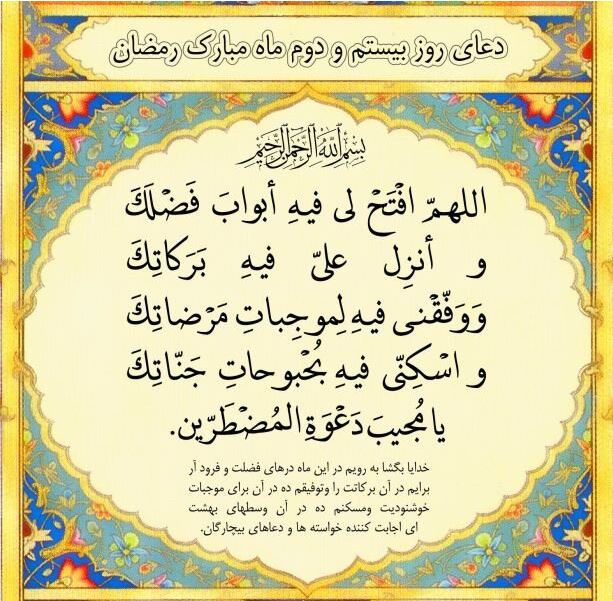 دعای روز بیستم و دوم ماه مبارک رمضان
بِسْمِ اللهِ الرَّحْمنِ الرَّحيمِ
اللهمّ افْتَحْ لی فيهِ أبوابَ فَضْلَكَ
و أنزِل علیّ فيهِ بَرَكاتِكَ
وَوَفّقْنی فيهِ لِموجِباتِ مَرْضاتِكَ
و اسْكِنّی فيهِ بُحْبوحاتِ جَنّاتِكَ
يا مُجيبَ دَعْوَةِ المُضْطَرّين.
خدایا بگشا به رویم در این ماه درهای فضلت و فرود آر
برایم در آن برکاتت را وتوفیقم ده در آن برای موجبات
خوشنودیت ومسکنم ده در آن وسطهای بهشت
ای اجابت کننده خواسته ها و دعاهای بیچارگان.